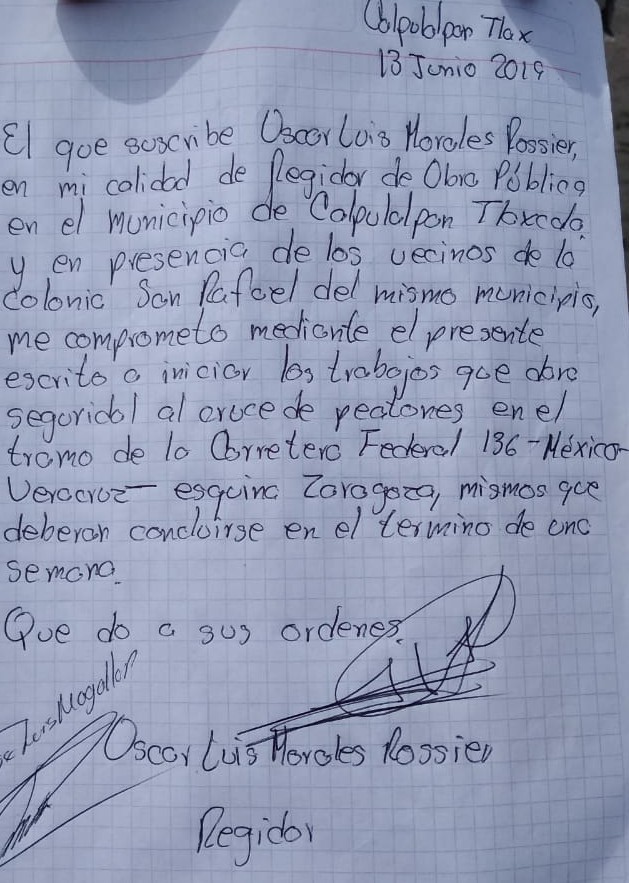 Calpulalpan Tlax
13 Junio 2019
El que suscribe Oscar Luis Morales Rossier,
en mi calidad de Regidor de Obra Pública
en el municipio de Calpulalpan Tlaxcala.
y en presencia de los vecinos de la
Colonia San Rafael del mismo municipio,
me comprometo mediante el presente
escrito a iniciar los trabajos que dara
seguridal al cruce de peatones en el
tramo de la Carretera Federal 136-México-
Veracruz- esquina Zaragoza, mismos que
deberan concluirse en el termino de una
semana.
Que do a sus ordenes.
Luis Mogollan
Oscar Luis Morales Rossier
Regidor